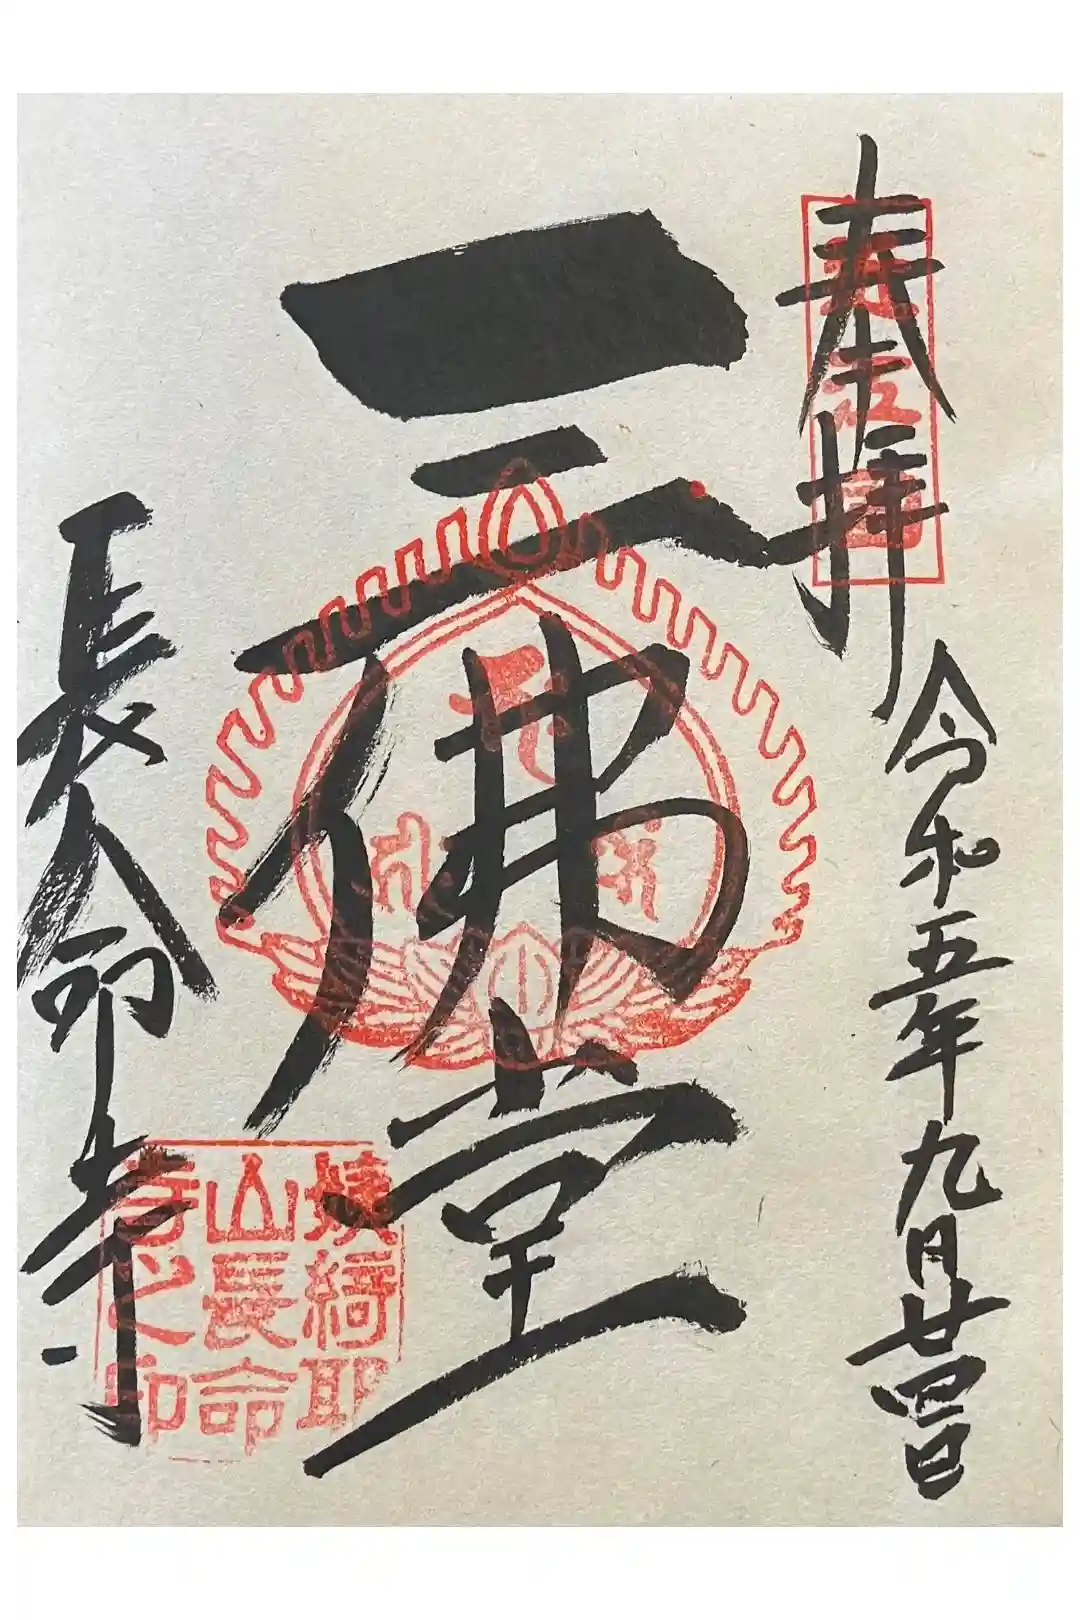 奉拝
令和五年九月廿四日
近江国
三佛堂
長命寺
姨綺耶
山長命
寺之印